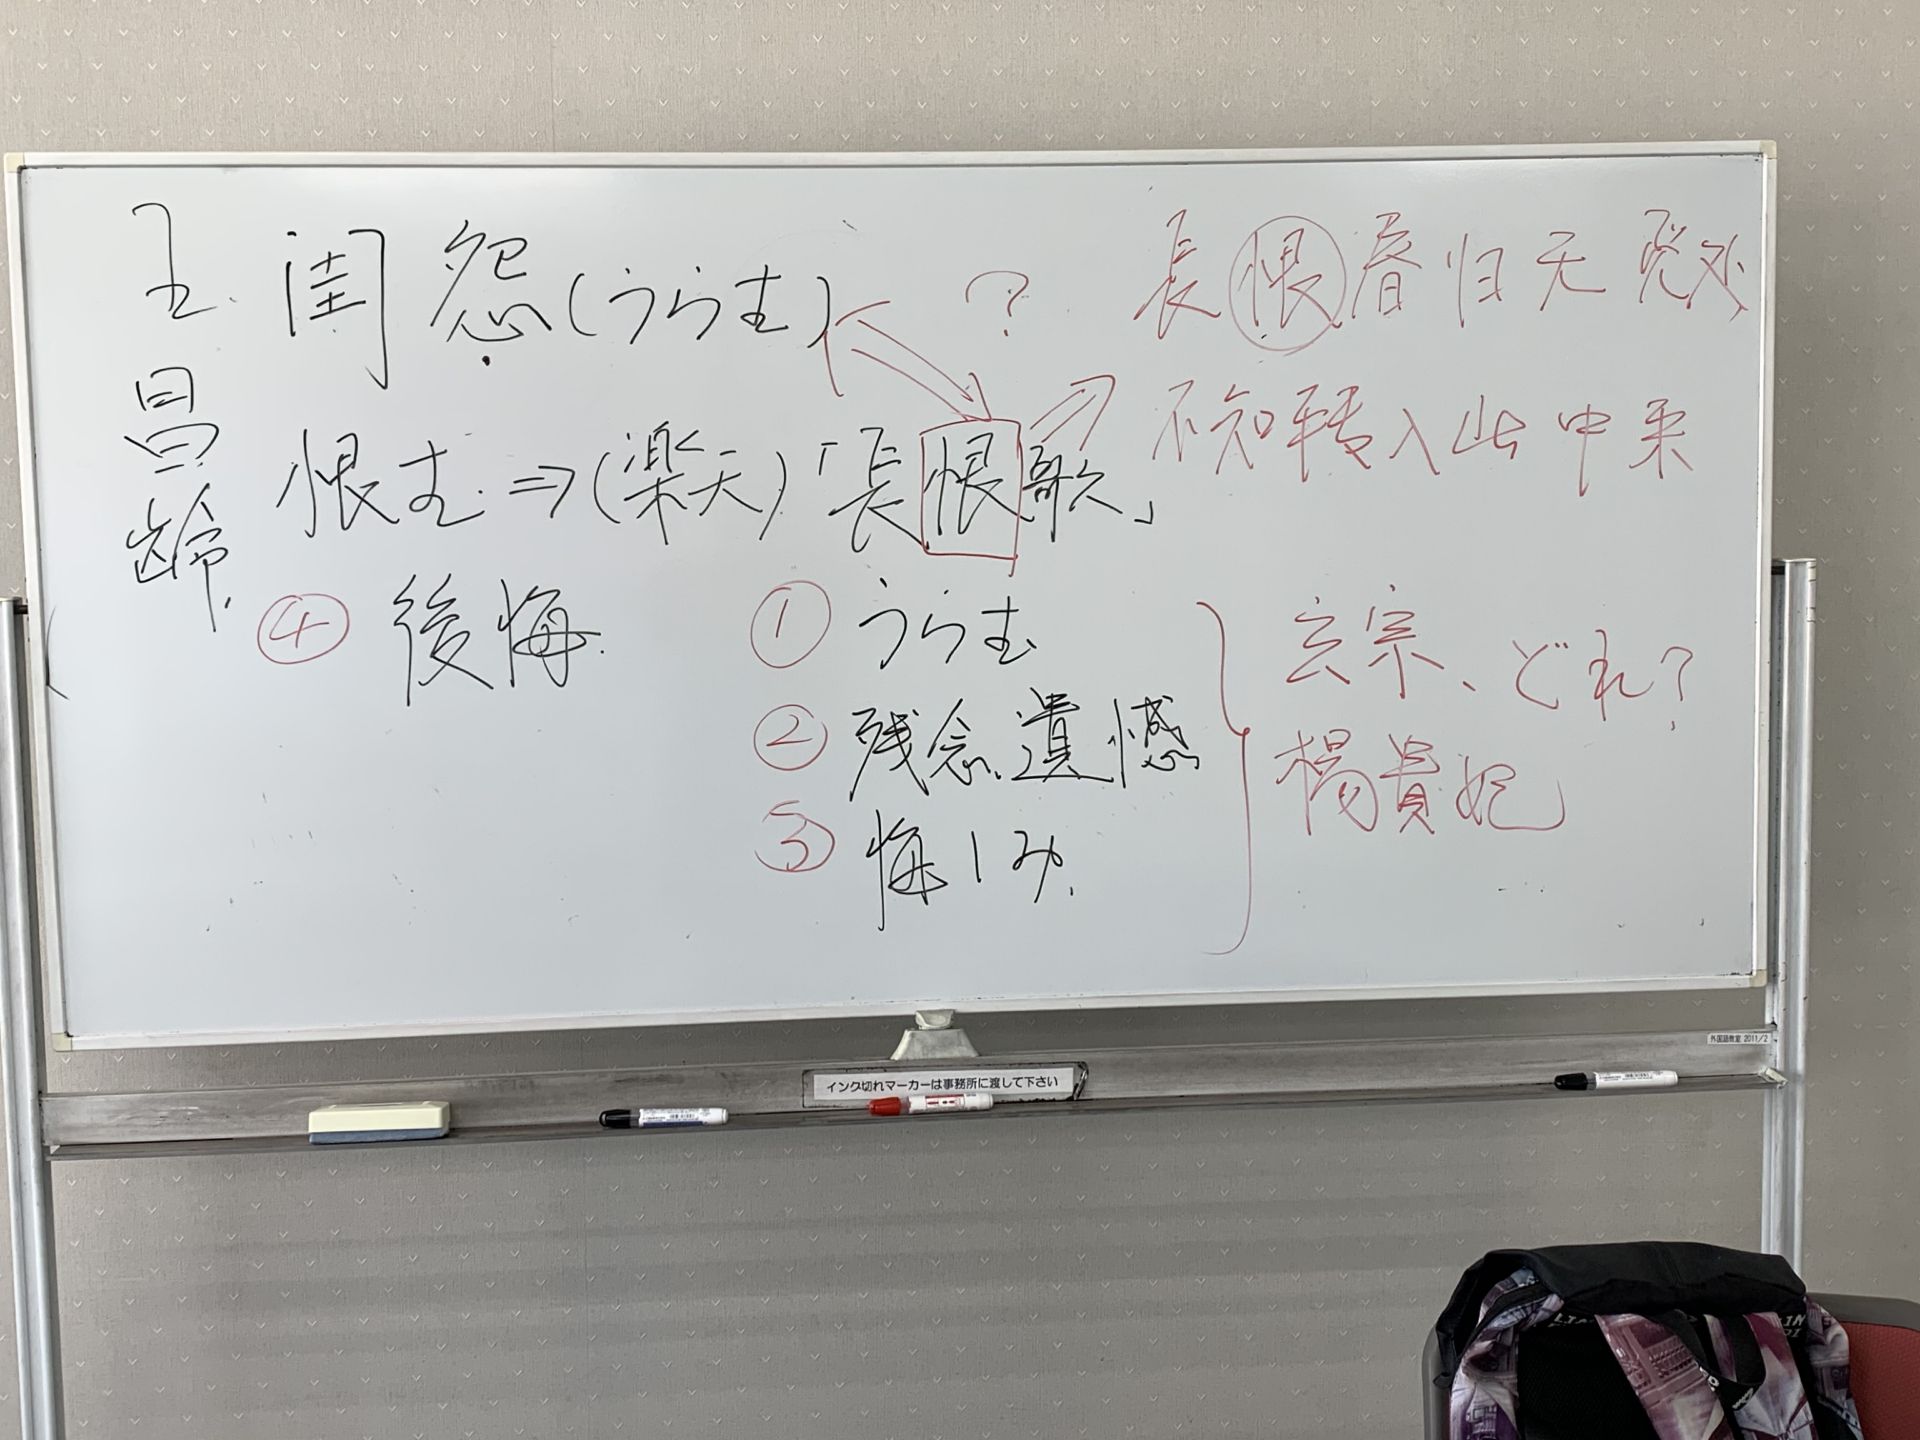 王昌齢
閨怨(うらむ)
?
長恨春归无觅处
不知转入此中来
恨む⇒(楽天)「長恨歌」
④ 後悔
① うらむ
② 残念、遺憾
③ 悔しみ
玄宗、どれ?
楊貴妃
外国語教室 2011/2
インク切れマーカーは事務所に渡して下さい